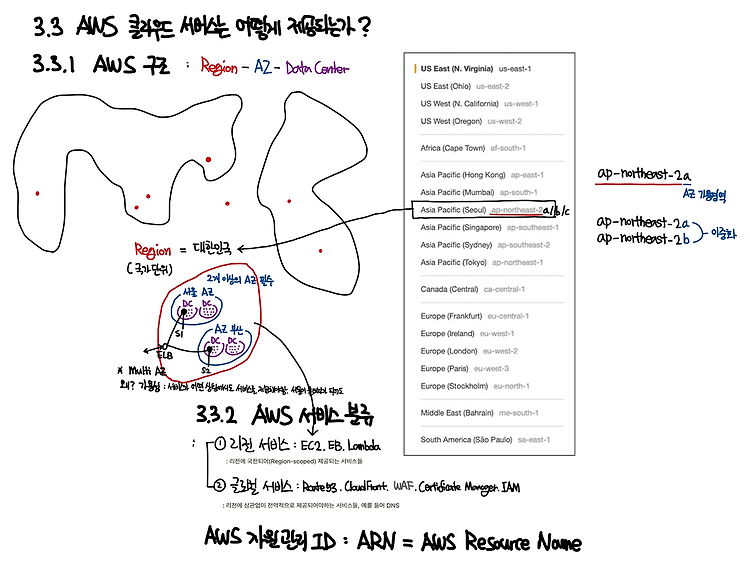 3.3 AWS 클라우드 서비스는 어떻게 제공되는가?
3.3.1 AWS 구조 : Region - AZ - Data Center
US East (N. Virginia) us-east-1
US East (Ohio) us-east-2
US West (N. California) us-west-1
US West (Oregon) us-west-2
Africa (Cape Town) af-south-1
Asia Pacific (Hong Kong) ap-east-1
Asia Pacific (Mumbai) ap-south-1
Asia Pacific (Seoul) ap-northeast-2 a/b/c
Asia Pacific (Singapore) ap-southeast-1
Asia Pacific (Sydney) ap-southeast-2
Asia Pacific (Tokyo) ap-northeast-1
Canada (Central) ca-central-1
Europe (Frankfurt) eu-central-1
Europe (Ireland) eu-west-1
Europe (London) eu-west-2
Europe (Paris) eu-west-3
Europe (Stockholm) eu-north-1
Middle East (Bahrain) me-south-1
South America (São Paulo) sa-east-1
ap-northeast-2a
AZ 가용영역
ap-northeast-2a
ap-northeast-2b
이중화
Region = 대한민국
(국가 단위)
2개 이상의 AZ 필수
서울 AZ
DC DC
S1
AZ 부산
DC DC
ELB
S2
* Multi AZ
왜? 가용성 : 서비스가 어떤 상황에서도 서비스를 제공해야함.
3.3.2 AWS 서비스 분류
: ① 리전 서비스 : EC2. EB. Lambda
: 리전에 국한되어(Region-scoped) 제공되는 서비스들
② 글로벌 서비스 : Route53. CloudFront. WAF. Certificate Manager. IAM
: 리전에 상관없이 전역적으로 제공되어야하는 서비스들, 예를 들어 DNS
AWS 자원관리 ID : ARN = AWS Resource Name